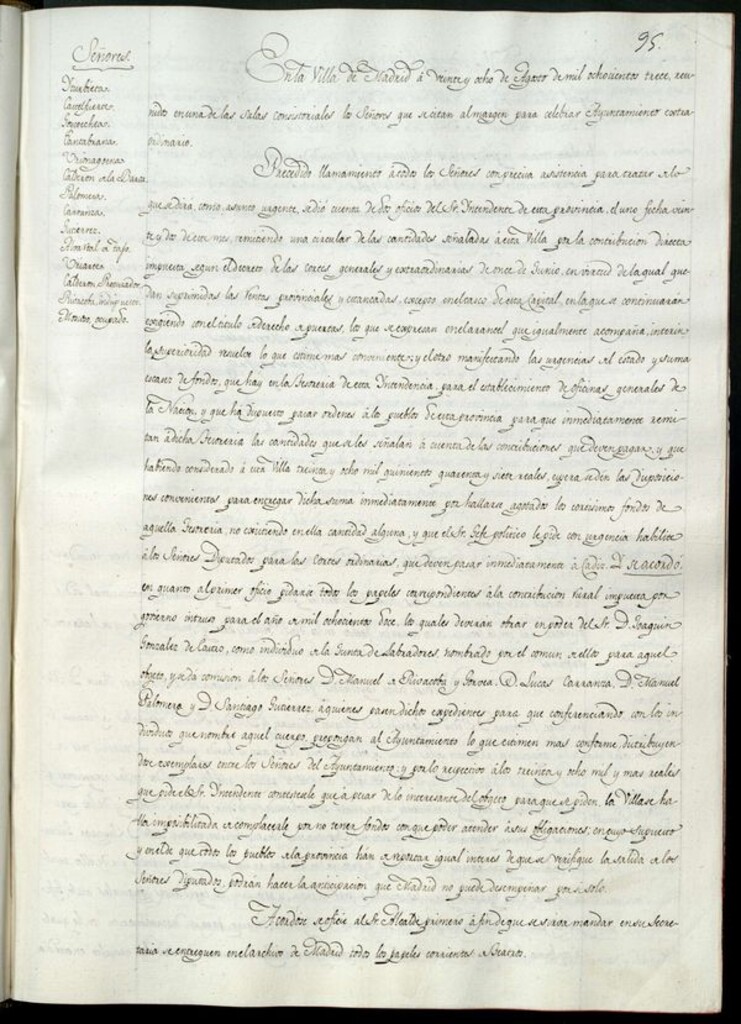 95.
Señores.
Yturbieta.
Castelfuerte.
Goycoechea.
Cantabrana.
Urionagoena.
Calderon de la Barca.
Palomera.
Carranza.
Gutierrez.
Uriarte.
Calderon, Procurador.
Rivacoba, indispuesto.
ocupado.
En la Villa de Madrid á veinte y ocho de Agosto de mil ochocientos trece, reu-
nidos en una de las Salas consistoriales los Señores que se citan al margen para celebrar Ayuntamiento extra-
ordinario.
Precedido llamamiento á todos los Señores con precisa asistencia para tratar de lo
que se dirá, como asunto urgente, se dió cuenta de dos oficios del Sr. Intendente de esta provincia, el uno fecha vein-
te y dos de este mes, remitiendo una circular de las cantidades señaladas á esta Villa por la contribucion directa
impuesta segun el Decreto de las cortes generales y extraordinarias de once de Junio, en virtud de la qual que-
dan suprimidas las Rentas provinciales y estancadas, excepto en el casco de esta Capital, en la que se continuarán
exigiendo con el titulo de derecho de puertas, los que se expresan en el arancel que igualmente acompaña, interin
la superioridad resuelve lo que estime mas conveniente; y el otro manifestando las urgencias del estado y suma
escasez de fondos, que hay en la Tesoreria de esta Intendencia, para el establecimiento de oficinas generales de
la Nacion, y que ha dispuesto pasar ordenes á los pueblos de esta provincia para que inmediatamente remi-
tan á dicha Tesoreria las cantidades que se les señalan á cuenta de las contribuciones que deven pagar; y que
habiendo considerado á esta Villa treinta y ocho mil quinientos quarenta y siete reales, espera se dén las disposicio-
nes convenientes para entregar dicha suma inmediatamente por hallarse agotados los cortisimos fondos de
aquella Tesoreria, no existiendo en ella cantidad alguna, y que el Sr. Gefe politico le pide con urgencia habilite
á los Señores Diputados para las Cortes ordinarias, que deven pasar inmediatamente á Cadiz. Y se acordó
en quanto al primer oficio pidanse todos los papeles correspondientes á la contribucion rural impuesta por
gobierno intruso para el año de mil ochocientos doce, los quales deverán obrar en poder del Sr. D. Joaquin
Gonzalez de Castro, como individuo de la Junta de Labradores, nombrado por el comun de ellos para aquel
objeto, y se dá comision á los Señores D. Manuel de Rivacoba y Gorvea, D. Lucas Carranza, D. Manuel
Palomera y D. Santiago Gutierrez á quienes pasen dichos expedientes para que conferenciando con los in-
dividuos que nombre aquel cuerpo, propongan al Ayuntamiento lo que estimen mas conforme distribuyen-
dose exemplares entre los Señores del Ayuntamiento; y por lo respectivo á los treinta y ocho mil y mas reales
que pide el Sr. Intendente contestesele que á pesar de lo interesante del objeto para que se piden, la Villa se ha-
lla imposibilitada de complacerle por no tener fondos con que poder atender á sus obligaciones; en cuyo supuesto
y en el de que todos los pueblos de la provincia han de reportar igual interes de que se verifique la salida de los
Señores Diputados, podrán hacer la anticipacion que Madrid no puede desempeñar por si solo.
Acordose se oficie al Sr. Alcalde primero á fin de que se sirva mandar en su Secre-
taria se entreguen en el archivo de Madrid todos los papeles corrientes